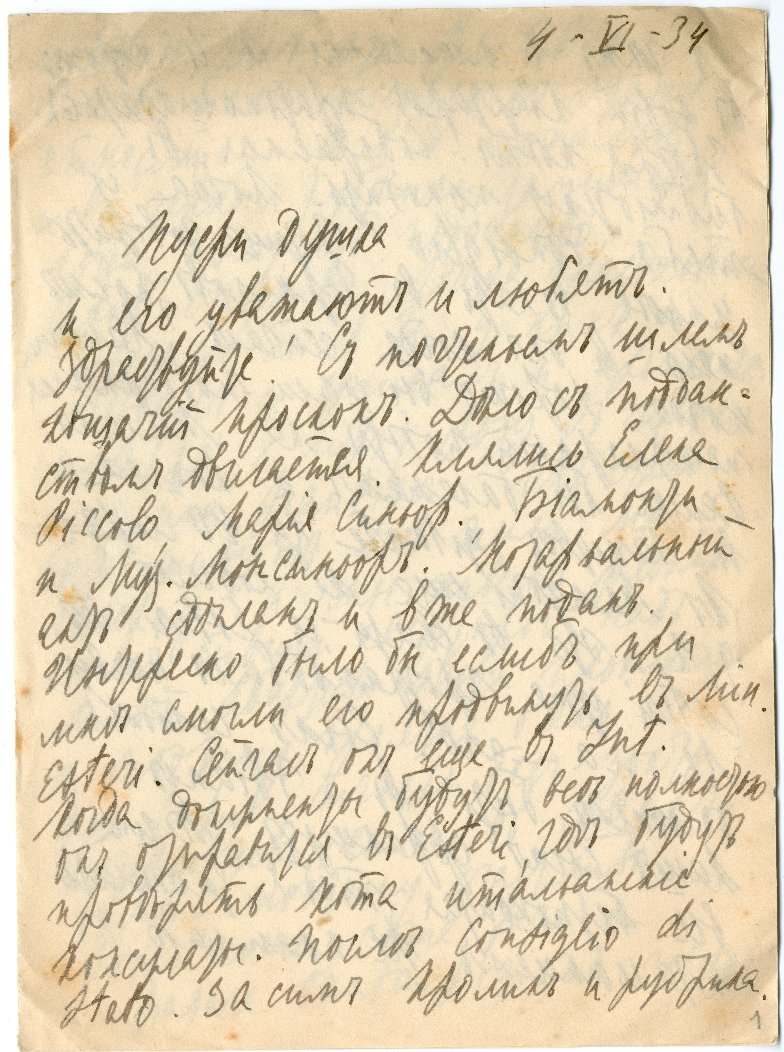 4-VI-34
Пусри Душка
и его уважаютъ и любятъ.
Здраствуйте! Съ почтеньемъ шлемъ
кошачій проскокъ. Дѣло съ поддан-
ствомъ двигается. Клялись Елена
Piccolo, Марія Синьор. Біамонти
и Муз. Монсиньоръ. Нотаріальный
актъ сдѣланъ и вже поданъ.
Интересно было бы еслибъ при
мнѣ смогли его продвинуть въ Min.
Esteri. Сейчасъ онъ еще въ Int.
Когда документы будутъ всѣ полностью
онъ отправится въ Esteri, гдѣ будутъ
провѣрять кота итальянскіе
консулаты. Послѣ Consiglio di
Stato. За симъ Кроликъ и рубрика.
1